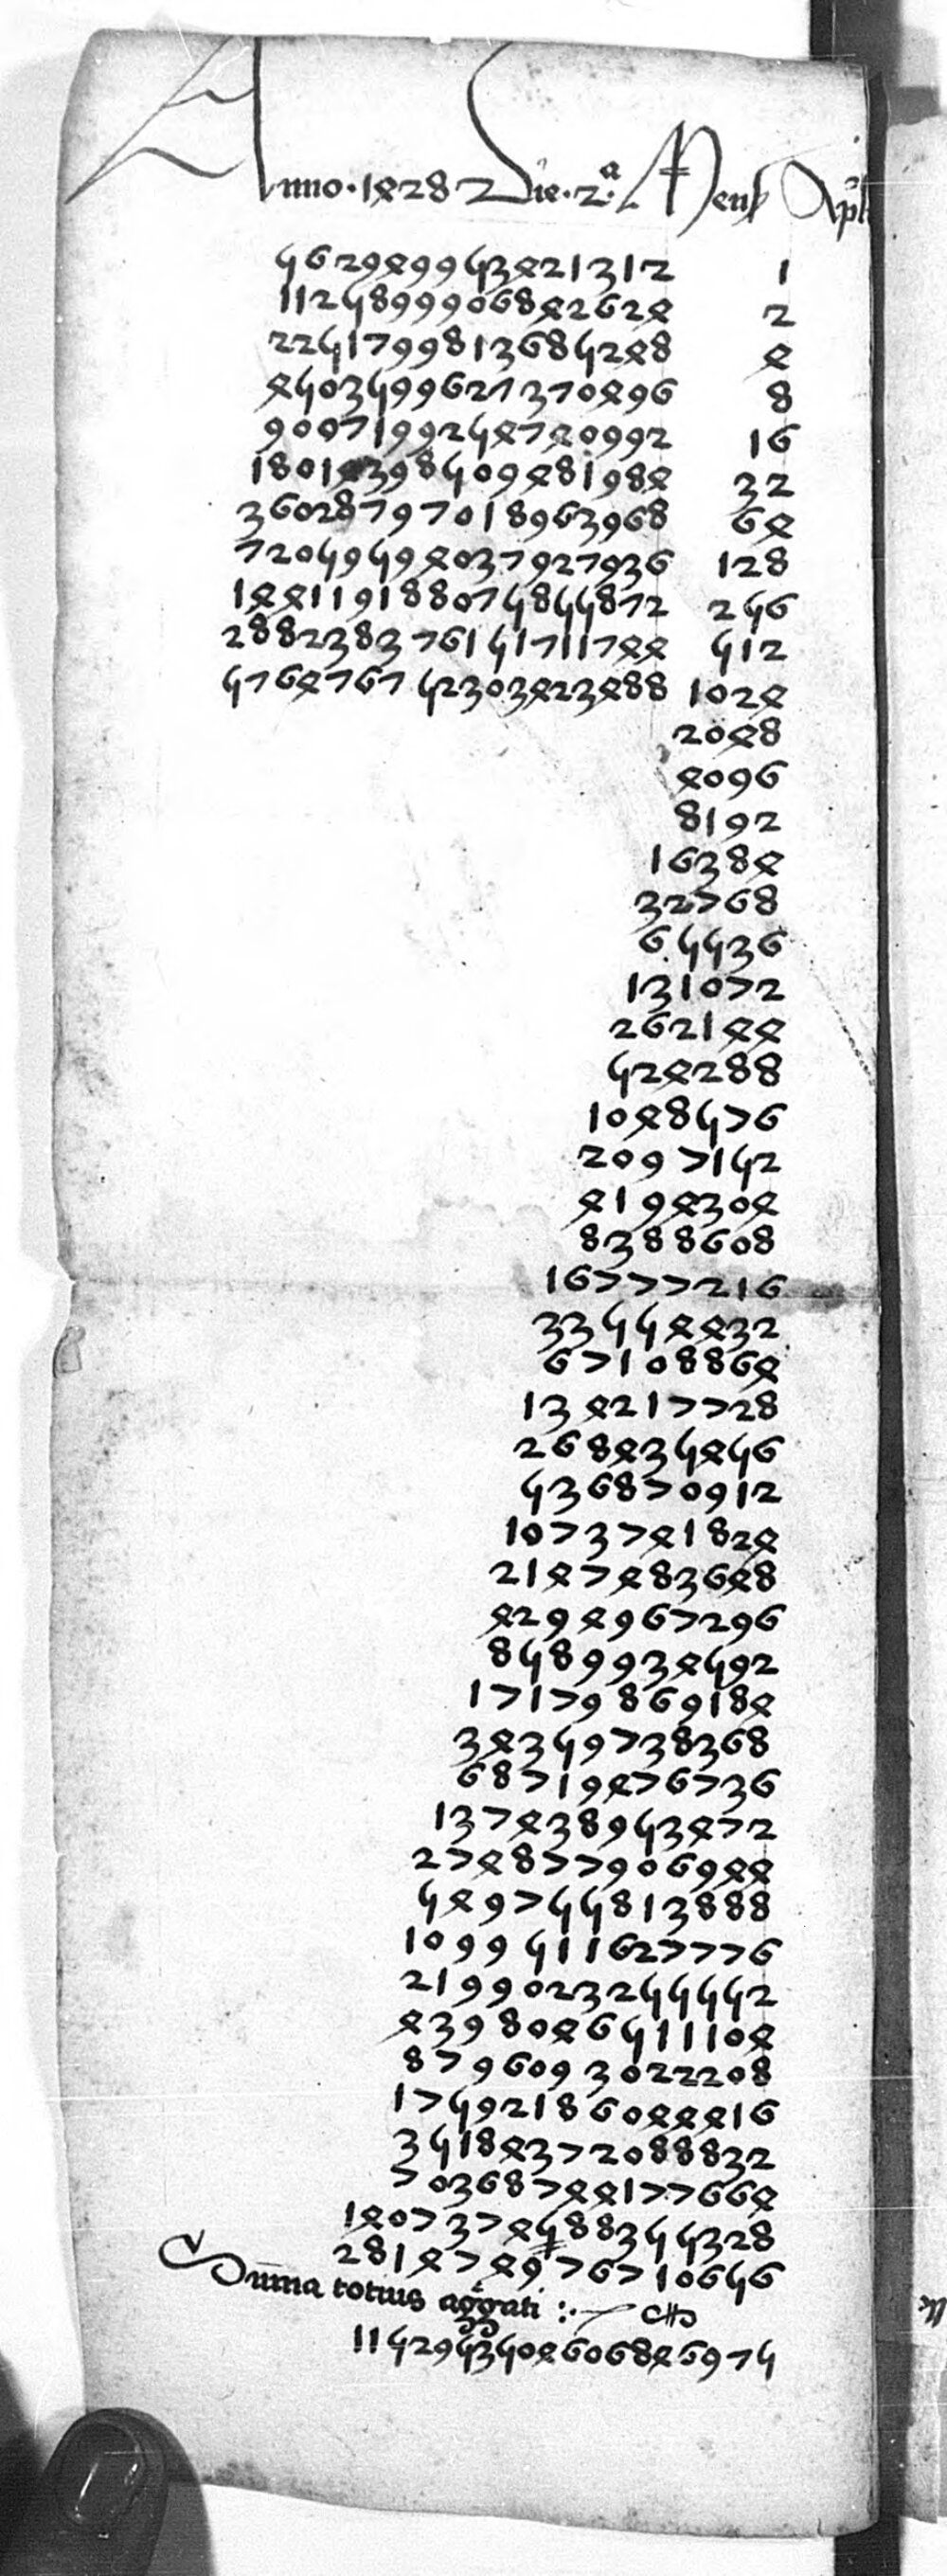 Anno · 1428 Die · 2ª Mens Apl
562949953421312 1
1125899906842624 2
2251799813685248 4
4503599627370496 8
9007199254740992 16
18014398509481984 32
36028797018963968 64
72059594037927936 128
144119188075855872 256
288238376151711744 512
576476752303423488 1024
2048
4096
8192
16384
32768
65536
131072
262144
524288
1048576
2097152
4194304
8388608
16777216
33554432
67108864
134217728
268435456
536870912
1073741824
2147483648
4294967296
8589934592
17179869184
34359738368
68719476736
137438953472
274877906944
549755813888
1099511627776
2199023255552
4398046511104
8796093022208
17592186044416
35184372088832
70368744177664
140737488355328
281474976710656
Suma totius aggati :·
1152953504606846975